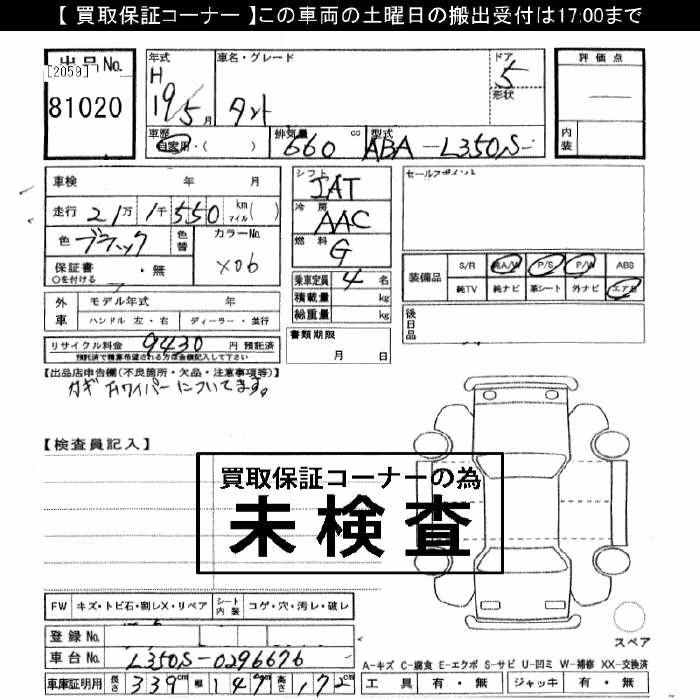 【 買取保証コーナー 】この車両の土曜日の搬出受付は17:00まで
出品No.
[2059]
81020
年式 H 19 5月
車名・グレード タント
ドア 5
形状
評価点
内装
車歴 自家用・( )
排気量 660 cc
型式 ABA-L350S-
車検 年 月
走行 21万 1千550 km マイル( )
色 ブラック 色替
カラーNo. X06
保証書 ・無
〇を付ける
シフト IAT
冷房 AAC
燃料 G
乗車定員 4 名
積載量 kg
総重量 kg
セールスポイント
装備品 S/R 純A/W P/S P/W ABS
純TV 純ナビ 革シート 外ナビ エアB
後日品
外車 モデル年式 年
ハンドル 左・右 ディーラー・並行
リサイクル料金 9430 円 預託済
預託済で精算希望される方は金額記入して下さい
書類期限
月 日
【出品店申告欄(不良箇所・欠品・注意事項等)】
【検査員記入】
買取保証コーナーの為
未検査
FW キズ・トビ石・割レX・リペア シート内装 コゲ・穴・汚レ・破レ
登録No.
車台No. L350S-0296676
車庫証明用 長さ 339cm 幅 147cm 高さ 172cm
スペア
A-キズ C-腐食 E-エクボ S-サビ U-凹ミ W-補修 XX-交換済
工具 有・無 ジャッキ 有・無